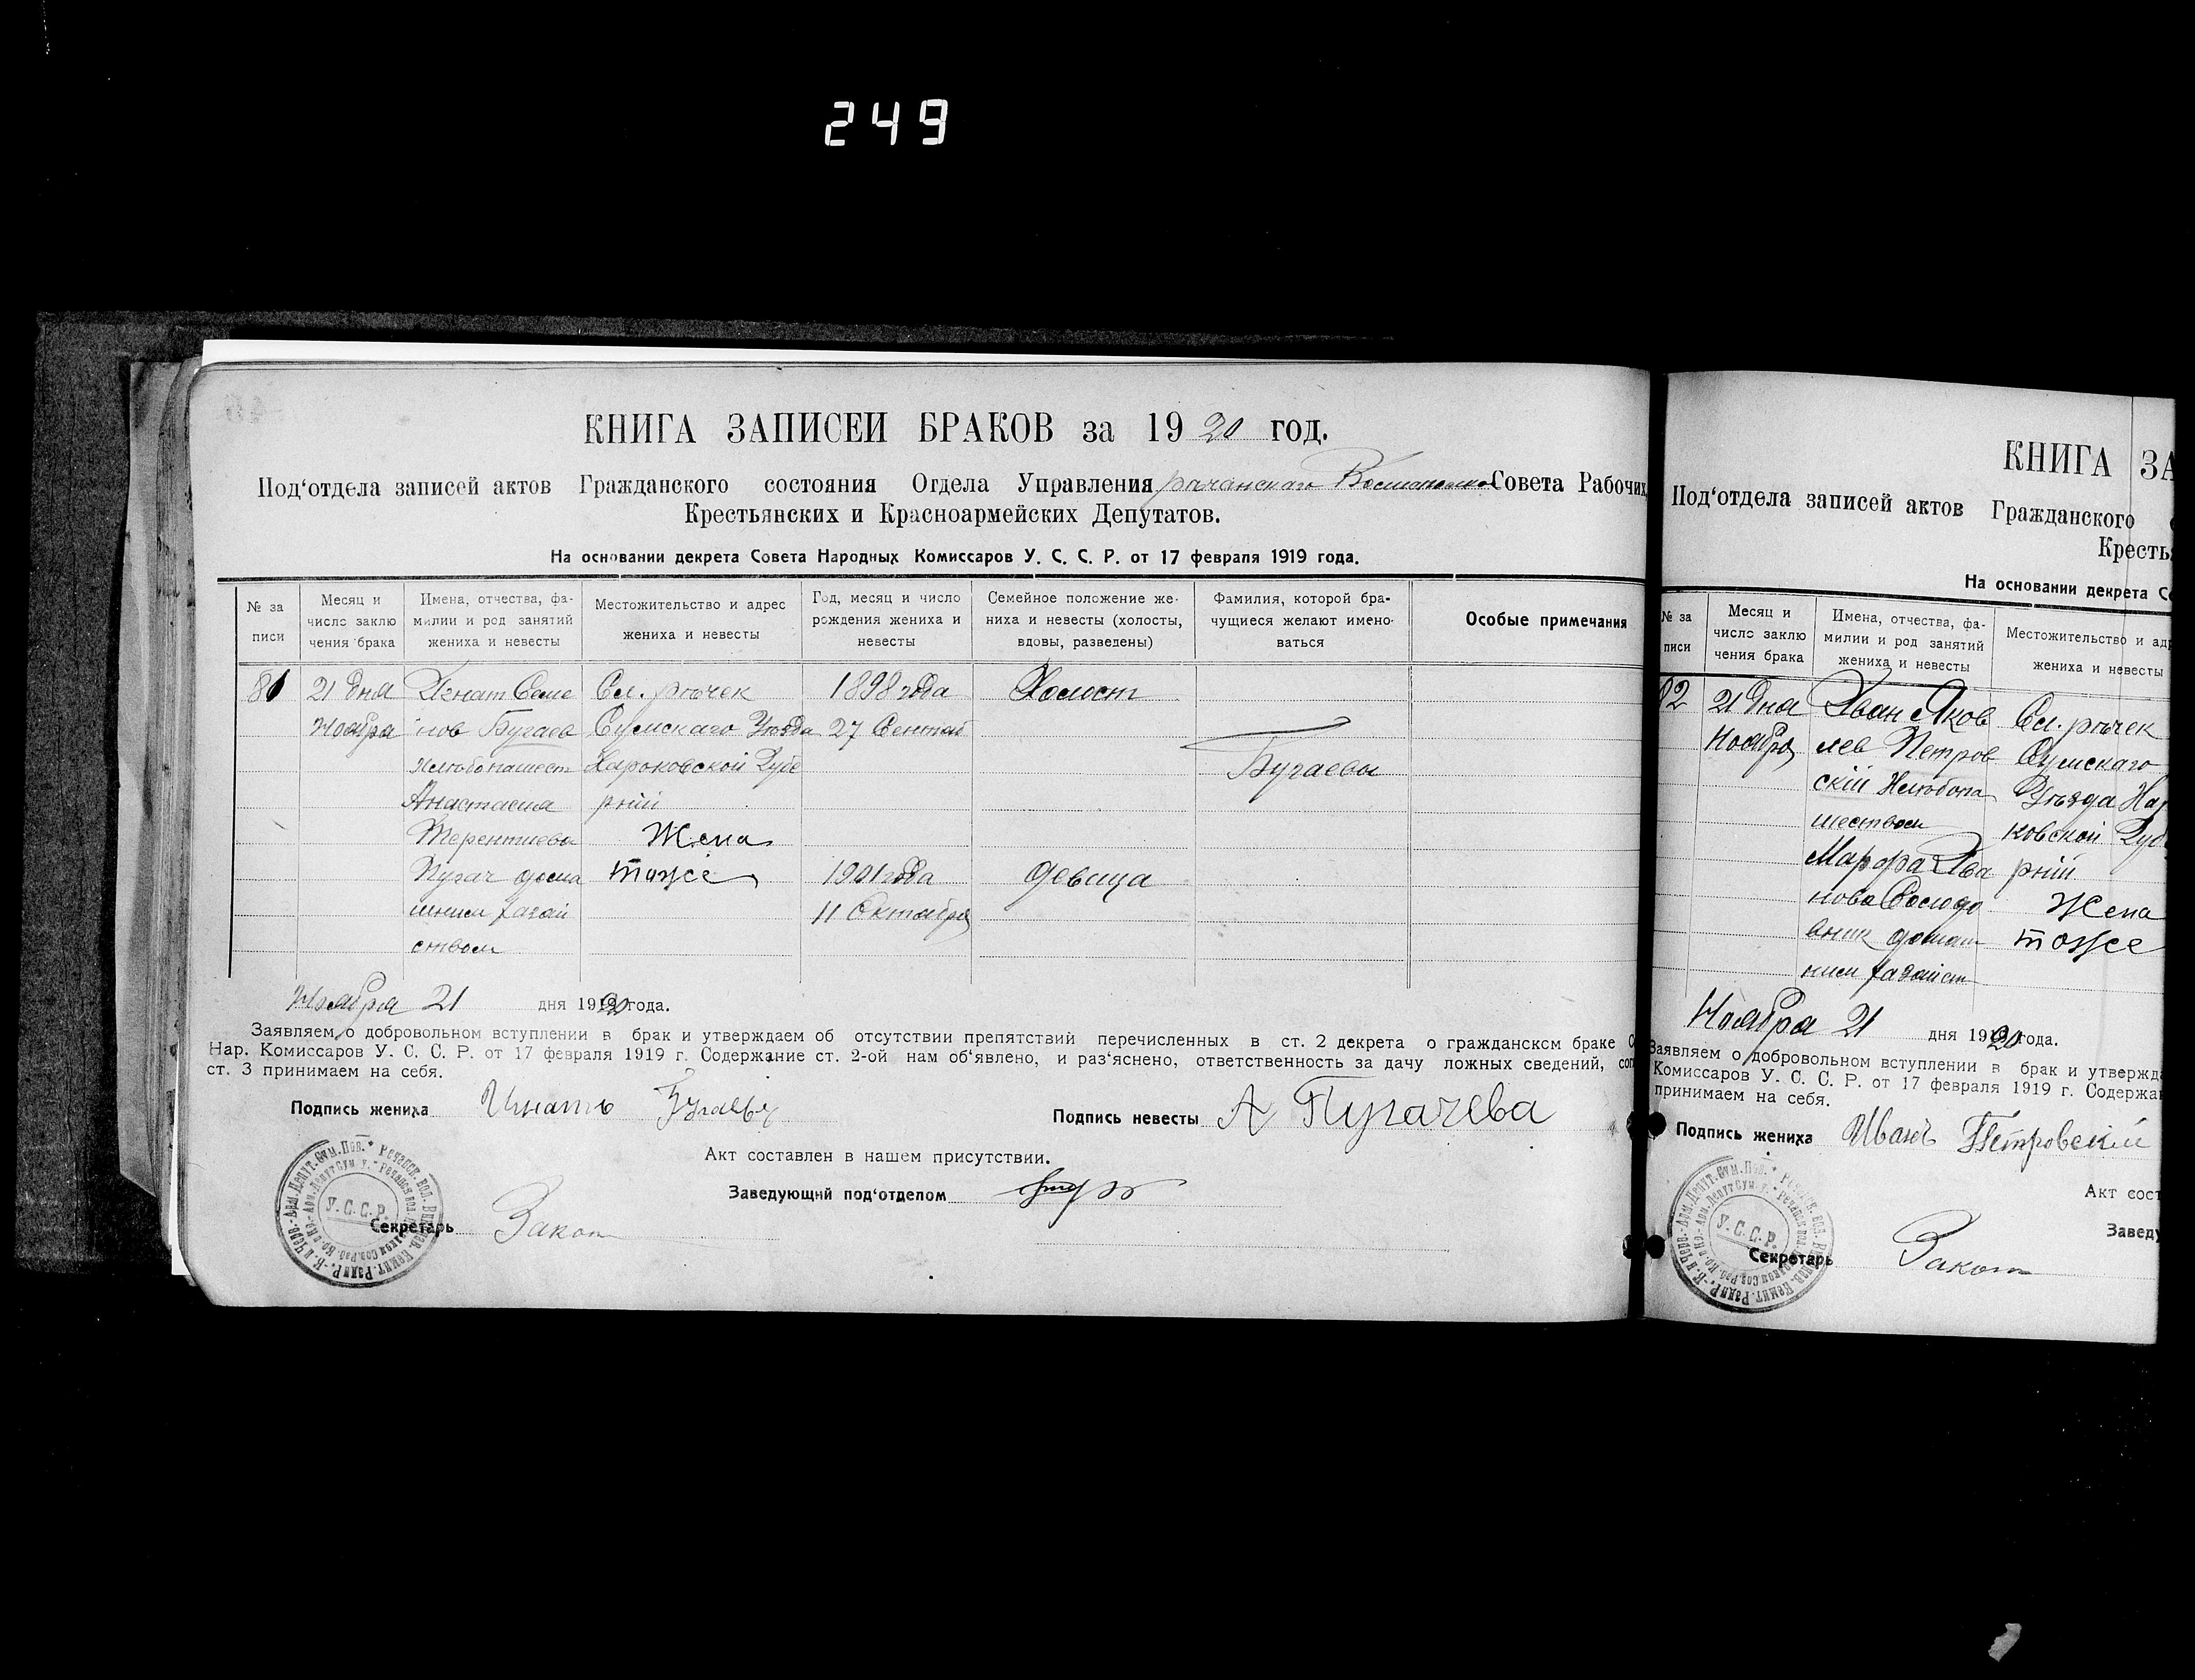 249
КНИГА ЗАПИСЕЙ БРАКОВ за 1920 год.
Под‘отдела записей актов Гражданского состояния Отдела Управления Совета Рабочих,
Крестьянских и Красноармейских Депутатов.
На основании декрета Совета Народных Комиссаров У. С. С. Р. от 17 февраля 1919 года.
№ за писи
Месяц и число заклю чения брака
Имена, отчества, фа- милии и род занятий жениха и невесты
Местожительство и адрес жениха и невесты
Год, месяц и число рождения жениха и невесты
Семейное положение же- ниха и невесты (холосты, вдовы, разведены)
Фамилия, которой бра- чущиеся желают имено- ваться
Особые примечания
81 21 дня Игнат Семе Сл. рѣчек 1898 года Холост
Ноября нов Бугаев Сумскаго Уѣзда 27 Сентяб
Хлебопашест Харьковской Губе Бугаевы
Анастасия рнии
Терентиева Жена
Пугач дома тоже 1901 года девица
шним хазяй 11 Октября
ством
Ноября 21 дня 1920 года.
Заявляем о добровольном вступлении в брак и утверждаем об отсутствии препятствий перечисленных в ст. 2 декрета о гражданском браке С
Нар. Комиссаров У. С. С. Р. от 17 февраля 1919 г. Содержание ст. 2-ой нам об‘явлено, и раз‘яснено, ответственность за дачу ложных сведений, сог
ст. 3 принимаем на себя.
Подпись жениха Игнатъ Бугаевъ Подпись невесты А Пугачева
Акт составлен в нашем присутствии.
Заведующий под‘отделом
Секретарь Закот
У.С.С.Р.
КНИГА ЗА
Под‘отдела записей актов Гражданского с
Кресть
На основании декрета Со
№ за писи
Месяц и число заклю чения брака
Имена, отчества, фа- милии и род занятий жениха и невесты
Местожительство и адр жениха и невесты
82 21 дня Иван Яков Сл. рѣчек
Ноября лев Петров Сумскаго
скій Хлебопа Уѣзда Хар
шеством ковской Губ
Марфа Ива рнии
нова Солодо Жена
вник домаш тоже
ним хазяйст
Ноября 21 дня 1920 года.
Заявляем о добровольном вступлении в брак и утвержда
Комиссаров У. С. С. Р. от 17 февраля 1919 г. Содержан
принимаем на себя.
Подпись жениха Иванъ Петровский
Акт сост
Заведу
Секретарь Закот
У.С.С.Р.